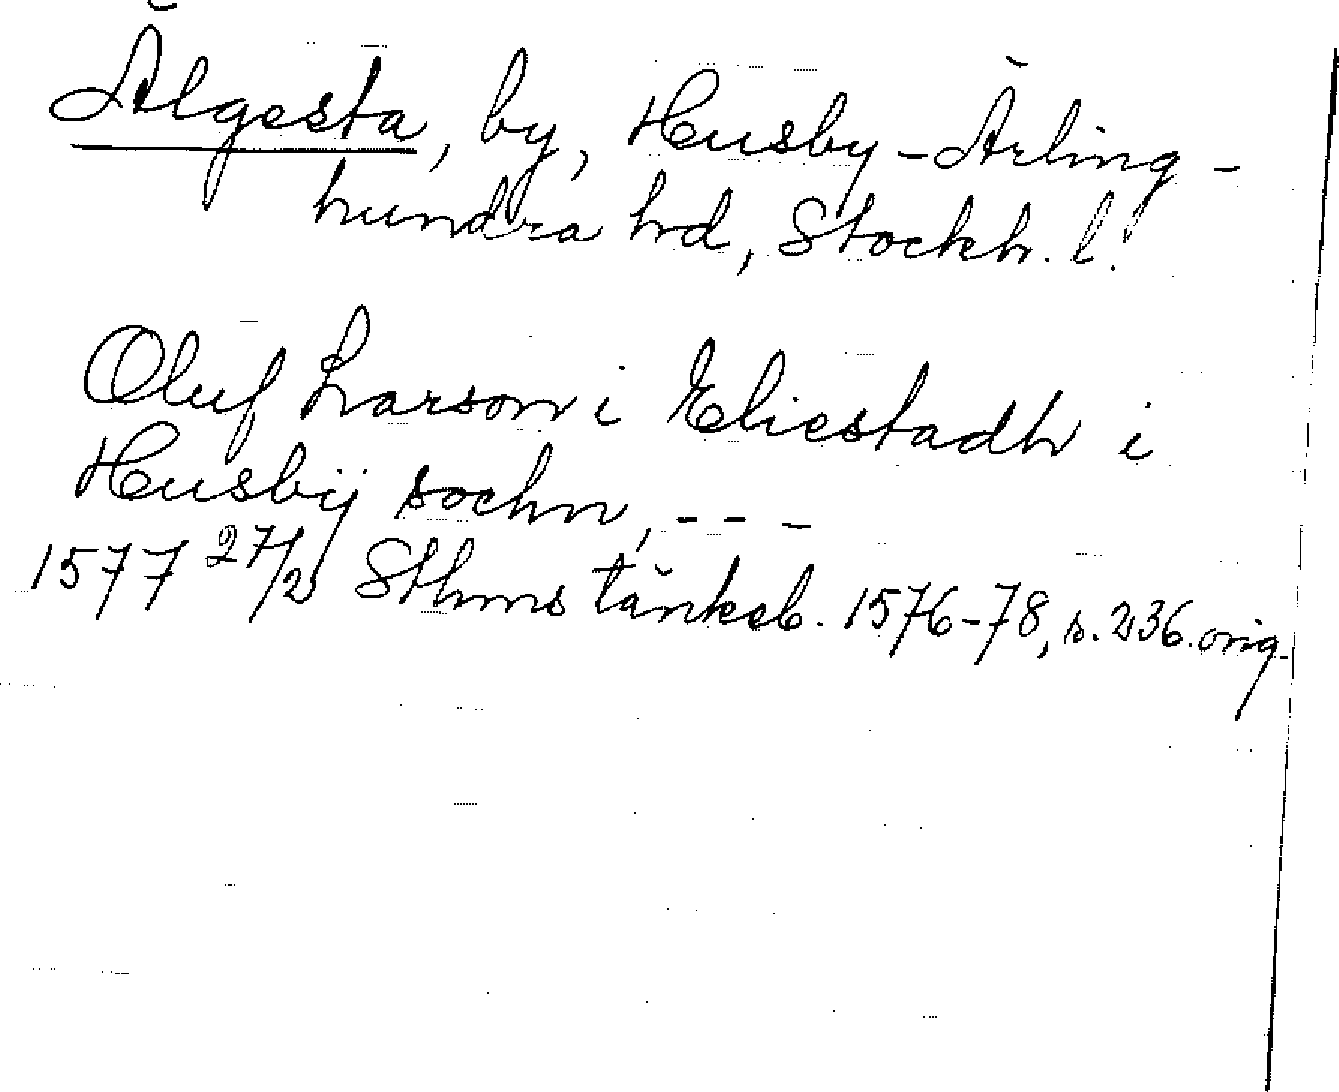 Älgesta, by, Husby-Ärling-
hundra hd, Stockh. l.
Oluf Larson i Eliestadh i
Husbÿ sochn, - - -
1577 27/2 Sthms tänkeb. 1576-78, s. 236. orig.